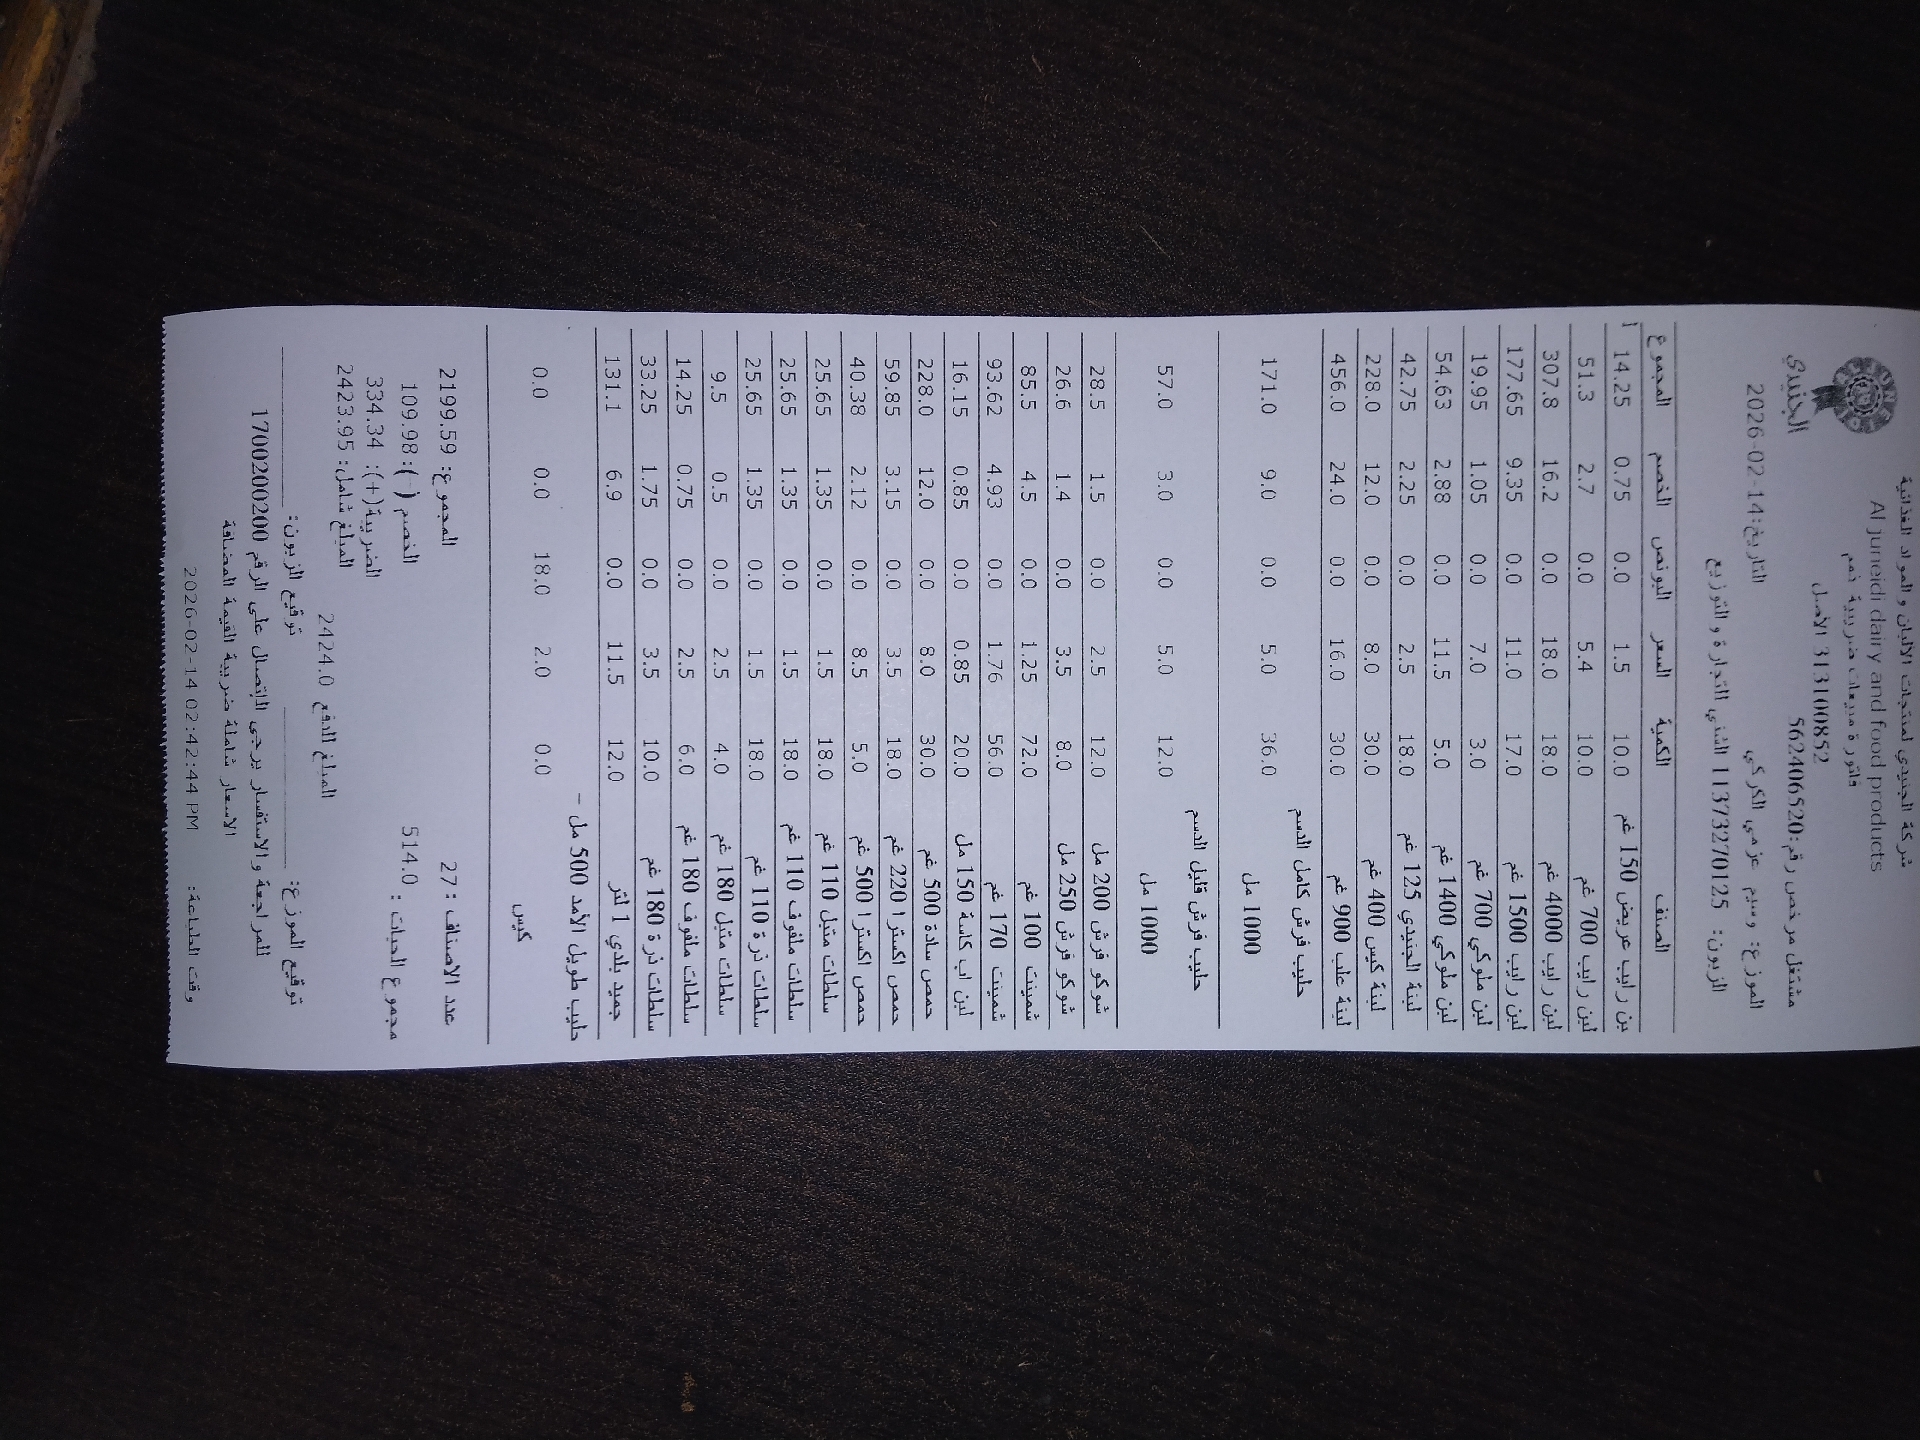 شركة الجنيدي لمنتجات الألبان والمواد الغذائية
Al juneidi dairy and food products
فاتورة مبيعات ضريبية ذمم
3131100852 الأصل
الجنيدي
مشتغل مرخص رقم:562406520
التاريخ:2026-02-14 الموزع: وسيم عزمي الكركي
الزبون: 1137327025 الشني التجارة والتوزيع
الصنف الكمية السعر البونص الخصم المجموع
بن رايب عريض 150 غم 10.0 1.5 0.0 0.75 14.25
لبن رايب 700 غم 10.0 5.4 0.0 2.7 51.3
لبن رايب 4000 غم 18.0 18.0 0.0 16.2 307.8
لبن رايب 1500 غم 17.0 11.0 0.0 9.35 177.65
لبن ملوكي 700 غم 3.0 7.0 0.0 1.05 19.95
لبن ملوكي 1400 غم 5.0 11.5 0.0 2.88 54.63
لبنة الجنيدي 125 غم 18.0 2.5 0.0 2.25 42.75
لبنة كيس 400 غم 30.0 8.0 0.0 12.0 228.0
لبنة علب 900 غم 30.0 16.0 0.0 24.0 456.0
حليب فرش كامل الدسم
1000 مل 36.0 5.0 0.0 9.0 171.0
حليب فرش قليل الدسم
1000 مل 12.0 5.0 0.0 3.0 57.0
شوكو فرش 200 مل 12.0 2.5 0.0 1.5 28.5
شوكو فرش 250 مل 8.0 3.5 0.0 1.4 26.6
شمينت 100 غم 72.0 1.25 0.0 4.5 85.5
شمينت 170 غم 56.0 1.76 0.0 4.93 93.62
لبن اب كاسة 150 مل 20.0 0.85 0.0 0.85 16.15
حمص سادة 500 غم 30.0 8.0 0.0 12.0 228.0
حمص اكسترا 220 غم 18.0 3.5 0.0 3.15 59.85
حمص اكسترا 500 غم 5.0 8.5 0.0 2.12 40.38
سلطات متبل 110 غم 18.0 1.5 0.0 1.35 25.65
سلطات ملفوف 110 غم 18.0 1.5 0.0 1.35 25.65
سلطات ذرة 110 غم 18.0 1.5 0.0 1.35 25.65
سلطات متبل 180 غم 4.0 2.5 0.0 0.5 9.5
سلطات ملفوف 180 غم 6.0 2.5 0.0 0.75 14.25
سلطات ذرة 180 غم 10.0 3.5 0.0 1.75 33.25
جميد بلدي 1 لتر 12.0 11.5 0.0 6.9 131.1
حليب طويل الأمد 500 مل -
كيس 0.0 2.0 18.0 0.0 0.0
عدد الاصناف : 27 المجموع: 2199.59
مجموع الحبات : 514.0 الخصم (-):109.98
الضريبة(+): 334.34
المبلغ شامل: 2423.95
المبلغ للدفع 2424.0
توقيع الموزع: توقيع الزبون:
للمراجعة والاستفسار يرجى الاتصال على الرقم 1700200200
الاسعار شاملة ضريبة القيمة المضافة
وقت الطباعة: 2026-02-14 02:42:44 PM